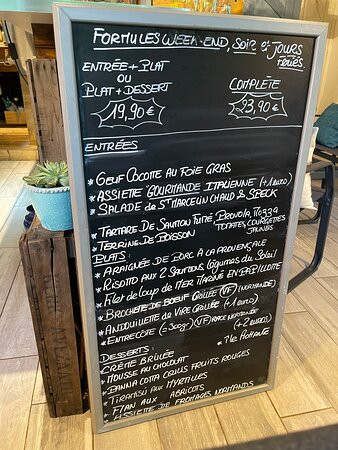 FORMULES WEEK-END, SOIR et JOURS
FÉRIÉS
ENTRÉE + PLAT
OU
PLAT + DESSERT
19,90€
COMPLÈTE
23,90€
ENTRÉES
* OEUF COCOTTE AU FOIE GRAS
* ASSIETTE GOURMANDE ITALIENNE (+1 EURO)
* SALADE de ST MARCELIN CHAUD & SPECK
* TARTARE DE SAUMON FUMÉ, PROVOLA,
TOMATES, COURGETTES
JAUNES
* TERRINE DE POISSON
PLATS:
* ARAIGNÉE DE PORC À LA PROVENÇALE
* RISOTTO AUX 2 SAUMONS, légumes du Soleil
* Filet de loup de MER MARINÉ EN PAPILLOTE
* BROCHETTE DE BOEUF GRILLÉE (VF) (NORMANDE)
* ANDOUILLETTE de VIRE GRILLÉE (+1 EURO)
* ENTRECÔTE (≈300gr) (VF) RACE NORMANDE
(+2 EUROS)
DESSERTS:
* CRÈME BRÛLÉE
* MOUSSE AU CHOCOLAT
* PANNA COTTA COULIS FRUITS ROUGES
* TIRAMISU AUX MYRTILLES
* FLAN AUX ABRICOTS
* ASSIETTE DE FROMAGES NORMANDS